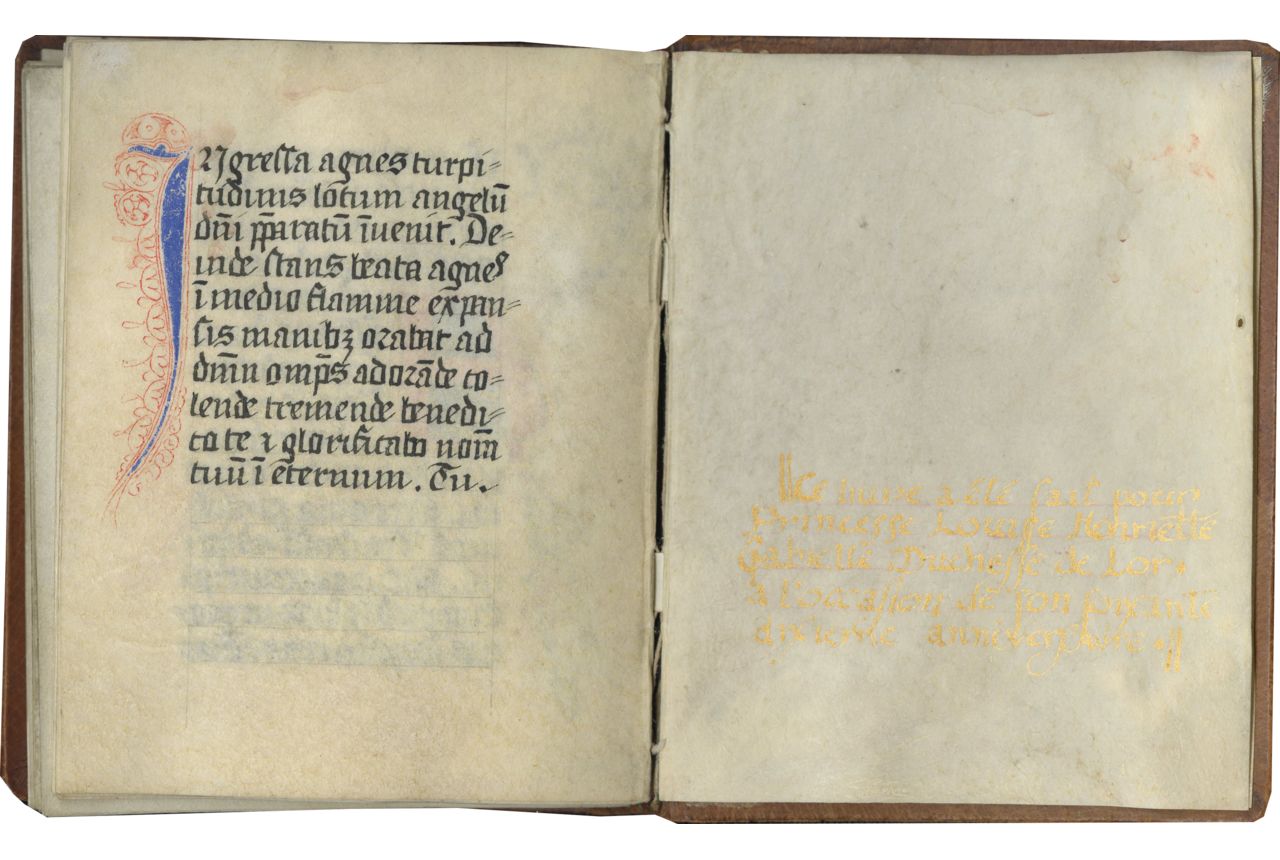 INgressa agnes turpi⸗
tudinis locum angelū
dn̄i p̄paratū īuenit. De⸗
inde stans beata agnes
ī medio flamme expan⸗
sis manibꝫ orabat ad
dn̄m omp̄s adorāde co⸗
lende tremende benedi⸗
co te ⁊ glorificabo nom̄
tuū ī eternum. Tu.
Ce livre a été fait pour
Princesse Louise Henriette
Gabelle Duchesse de Lor.
à l'occasion de son soixante
dixieme anniversaire.